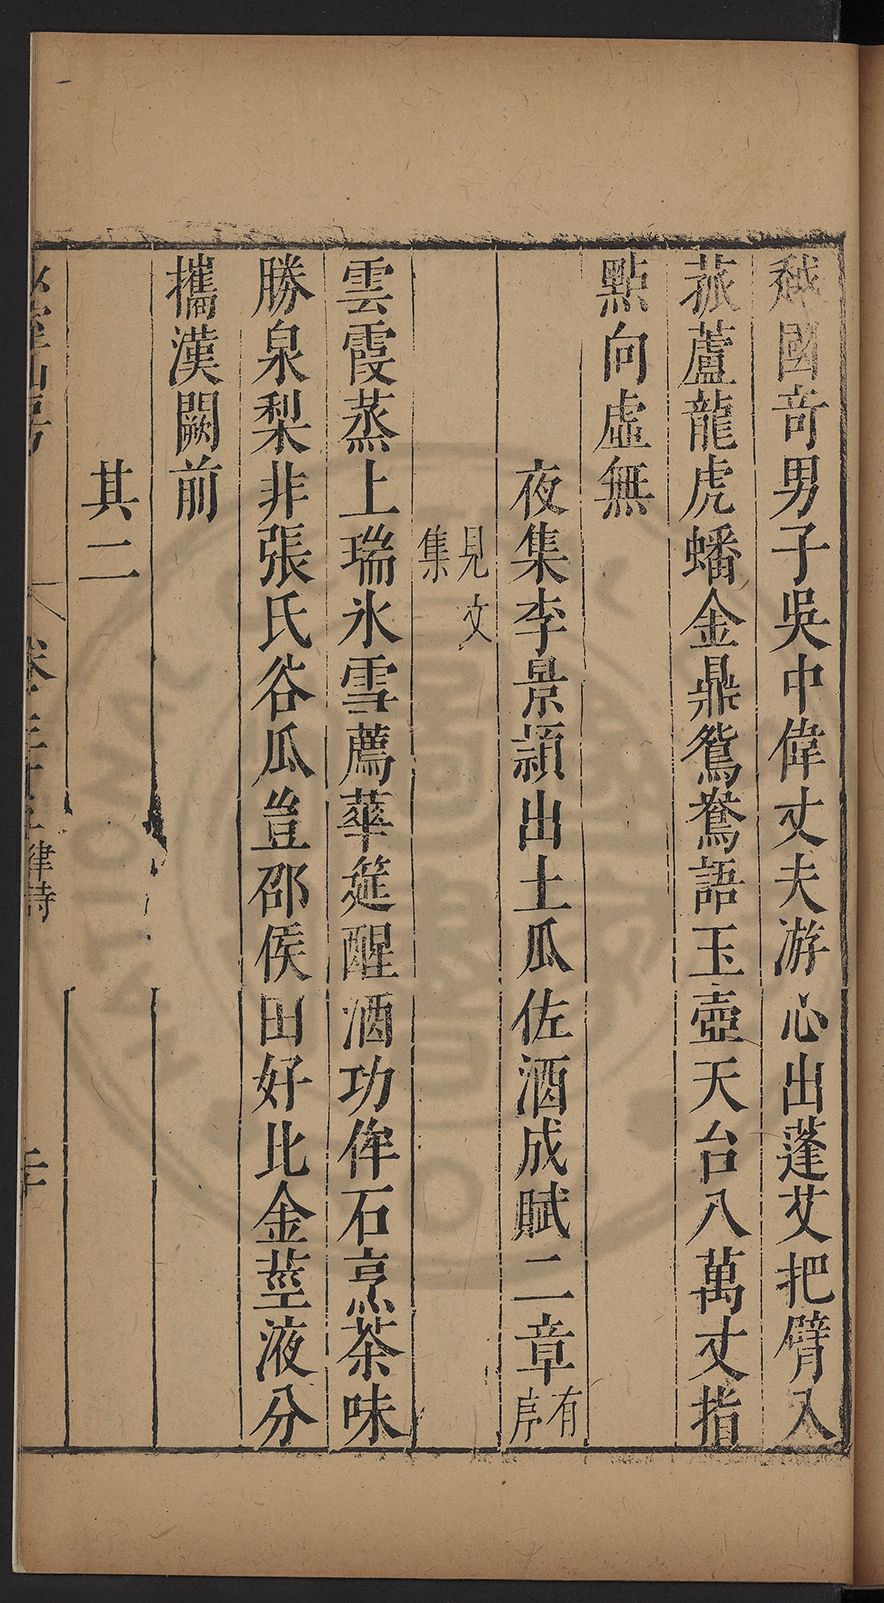 越國奇男子吳中偉丈夫游心出蓬艾把臂入
菰蘆龍虎蟠金鼎鴛鴦語玉壺天台八萬丈指
點向虛無
夜集李景頴出土瓜佐酒成賦二章有序
見文集
雲霞蒸上瑞氷雪薦華筵醒酒功侔石烹茶味
勝泉梨非張氏谷瓜豈邵侯田好比金莖液分
攜漢闕前
其二
律詩